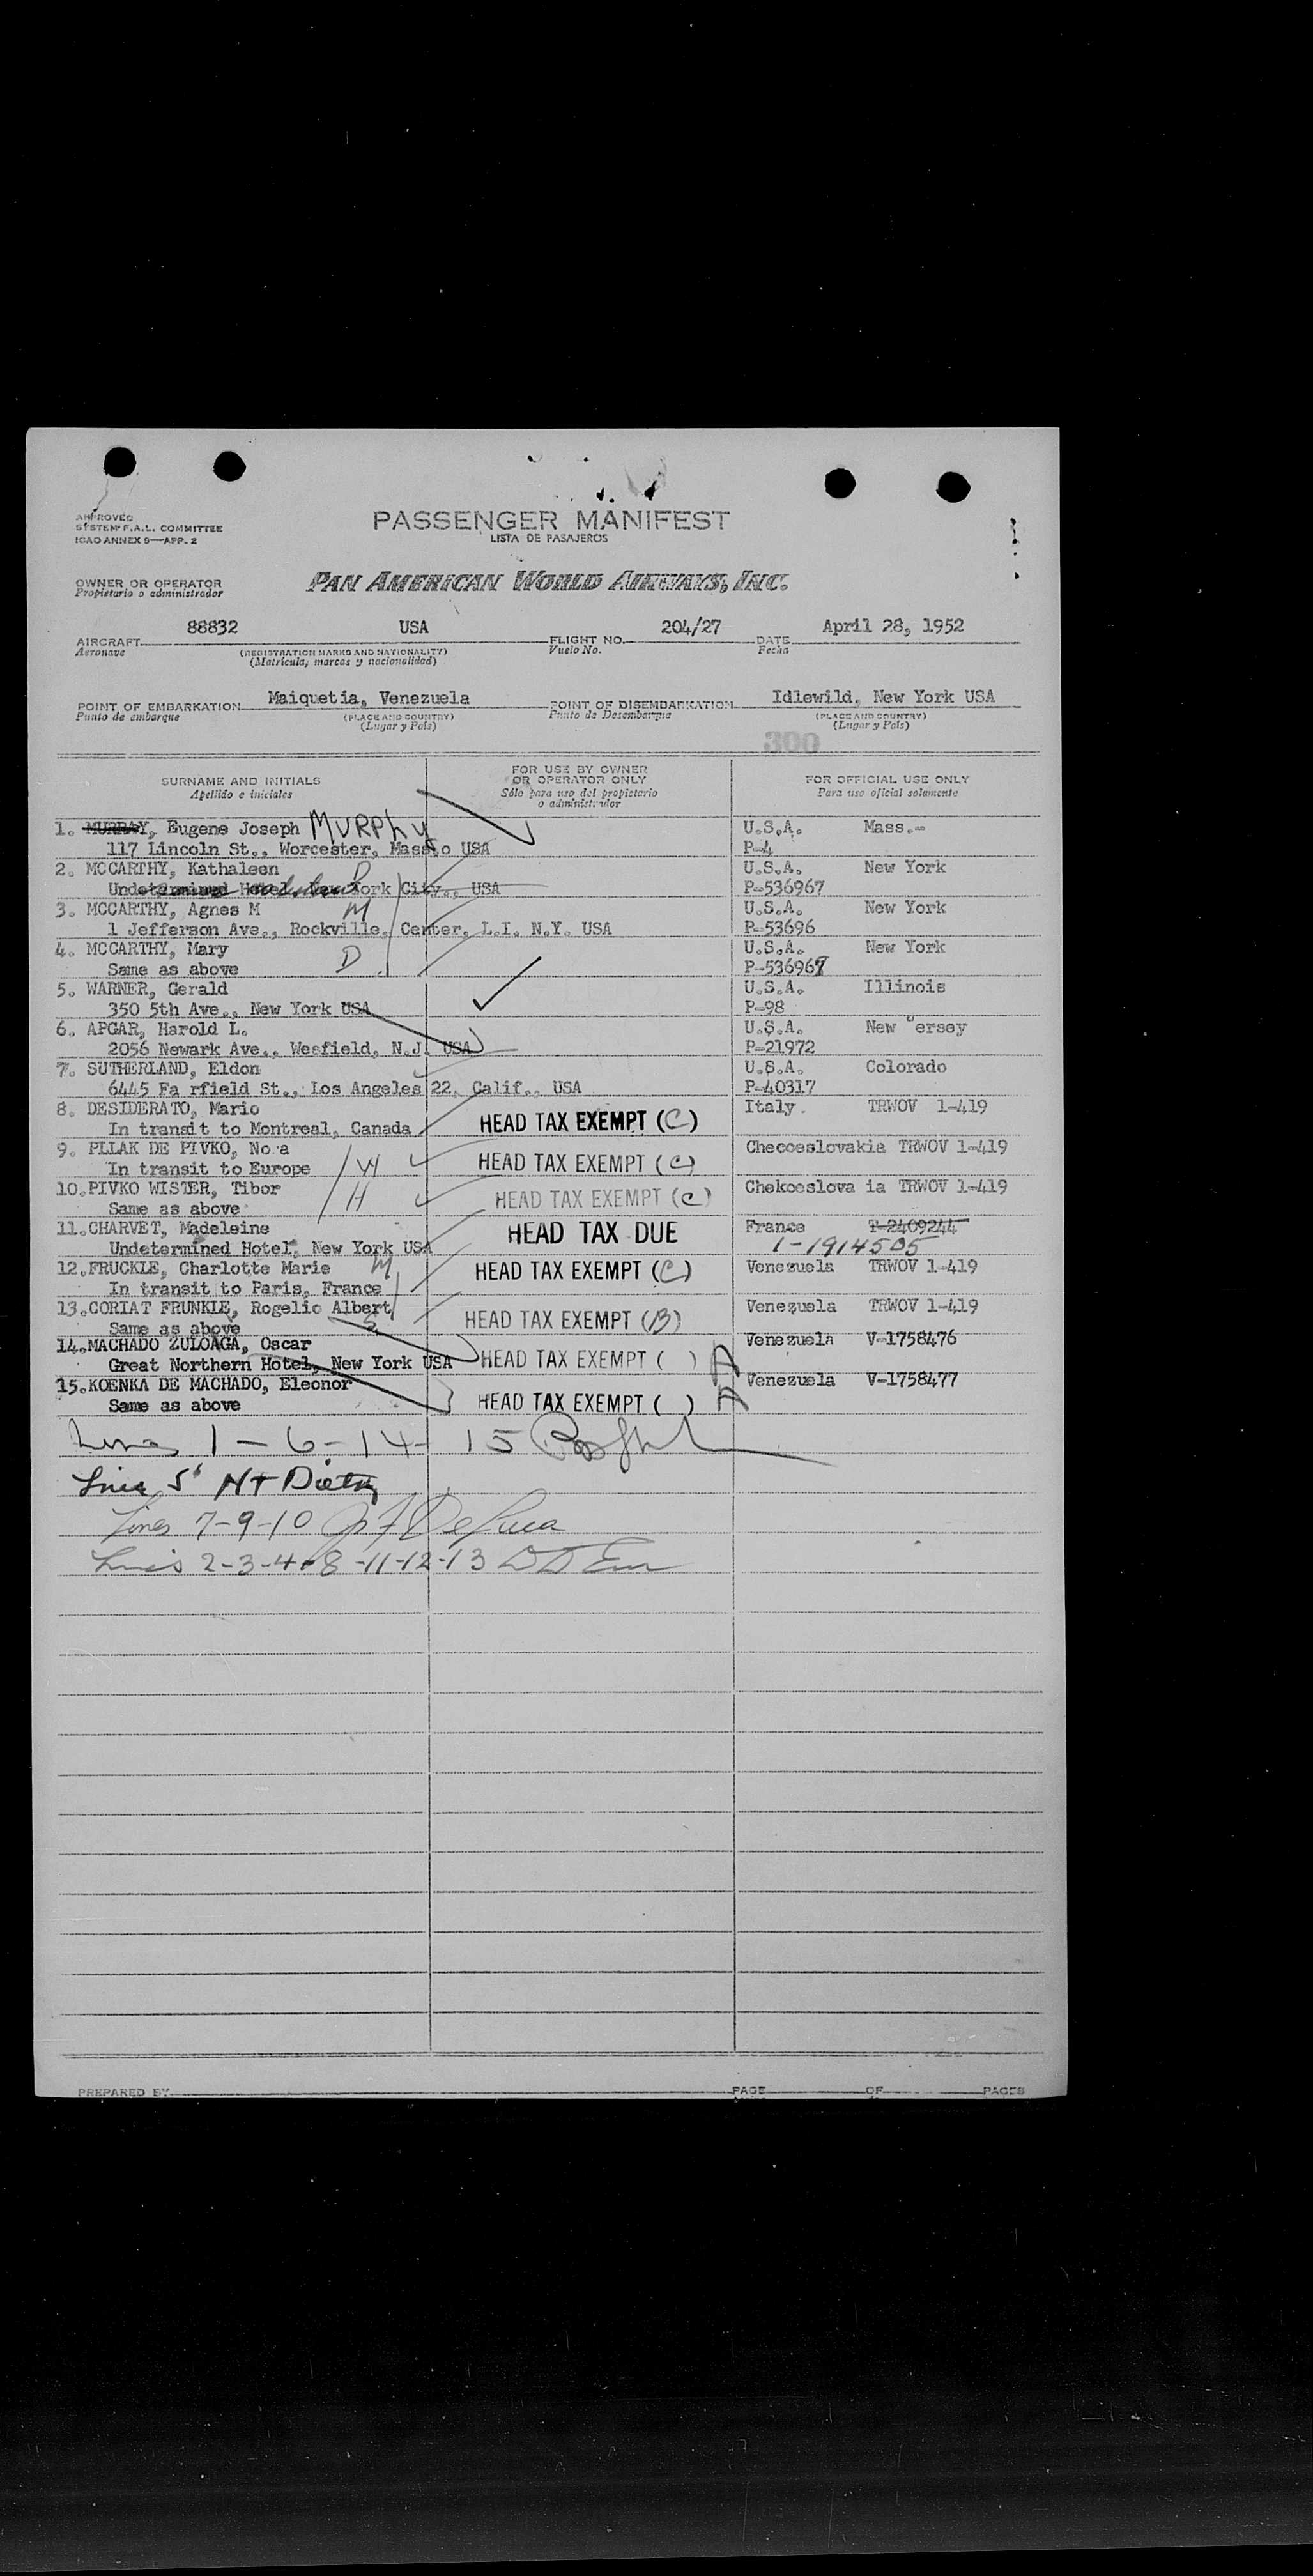 APPROVED
SYSTEM F.A.L. COMMITTEE
ICAO ANNEX 9—APP. 2
PASSENGER MANIFEST
LISTA DE PASAJEROS
OWNER OR OPERATOR
Propietario o administrador
PAN AMERICAN WORLD AIRWAYS, INC.
AIRCRAFT 88832 USA FLIGHT NO. 204/27 DATE April 28, 1952
Aeronave (REGISTRATION MARKS AND NATIONALITY) Vuelo No. Fecha
(Matricula, marcas y nacionalidad)
POINT OF EMBARKATION Maiquetia, Venezuela POINT OF DISEMBARKATION Idlewild, New York USA
Punto de embarque (PLACE AND COUNTRY) Punto de Desembarque (PLACE AND COUNTRY)
(Lugar y País) (Lugar y País)
300
SURNAME AND INITIALS FOR USE BY OWNER OR OPERATOR ONLY FOR OFFICIAL USE ONLY
Apellido e iniciales Sólo para uso del propietario o administrador Para uso oficial solamente
1. MURRAY, Eugene Joseph MURPHY U.S.A. Mass.-
117 Lincoln St., Worcester, Mass. USA P-4
2. MCCARTHY, Kathaleen D U.S.A. New York
Undetermined Hotel, New York City., USA P-536967
3. MCCARTHY, Agnes M M U.S.A. New York
1 Jefferson Ave., Rockville, Center, L.I. N.Y. USA P-53696
4. MCCARTHY, Mary D U.S.A. New York
Same as above P-536969
5. WARNER, Gerald U.S.A. Illinois
350 5th Ave., New York USA P-98
6. APGAR, Harold L. U.S.A. New ersey
2056 Newark Ave., Wesfield, N.J. USA P-21972
7. SUTHERLAND, Eldon U.S.A. Colorado
6445 Fa rfield St., Los Angeles 22, Calif., USA P-40317
8. DESIDERATO, Mario HEAD TAX EXEMPT (C) Italy. TRWOV 1-419
In transit to Montreal, Canada
9. PLLAK DE PIVKO, No a W HEAD TAX EXEMPT (C) Checoeslovakia TRWOV 1-419
In transit to Europe
10. PIVKO WISTER, Tibor H HEAD TAX EXEMPT (C) Chekoeslova ia TRWOV 1-419
Same as above
11. CHARVET, Madeleine HEAD TAX DUE France T-2409244
Undetermined Hotel, New York USA 1-1914505
12. FRUCKLE, Charlotte Marie M HEAD TAX EXEMPT (C) Venezuela TRWOV 1-419
In transit to Paris, France
13. CORIAT FRUNKIE, Rogelio Albert S HEAD TAX EXEMPT (B) Venezuela TRWOV 1-419
Same as above
14. MACHADO ZULOAGA, Oscar HEAD TAX EXEMPT ( ) A Venezuela V-1758476
Great Northern Hotel, New York USA
15. KOENKA DE MACHADO, Eleonor HEAD TAX EXEMPT ( ) A Venezuela V-1758477
Same as above
Lines 1-6-14-15
Line 5
Lines 7-9-10 De Luca
Lines 2-3-4-8-11-12-13
PREPARED BY PAGE OF PAGES